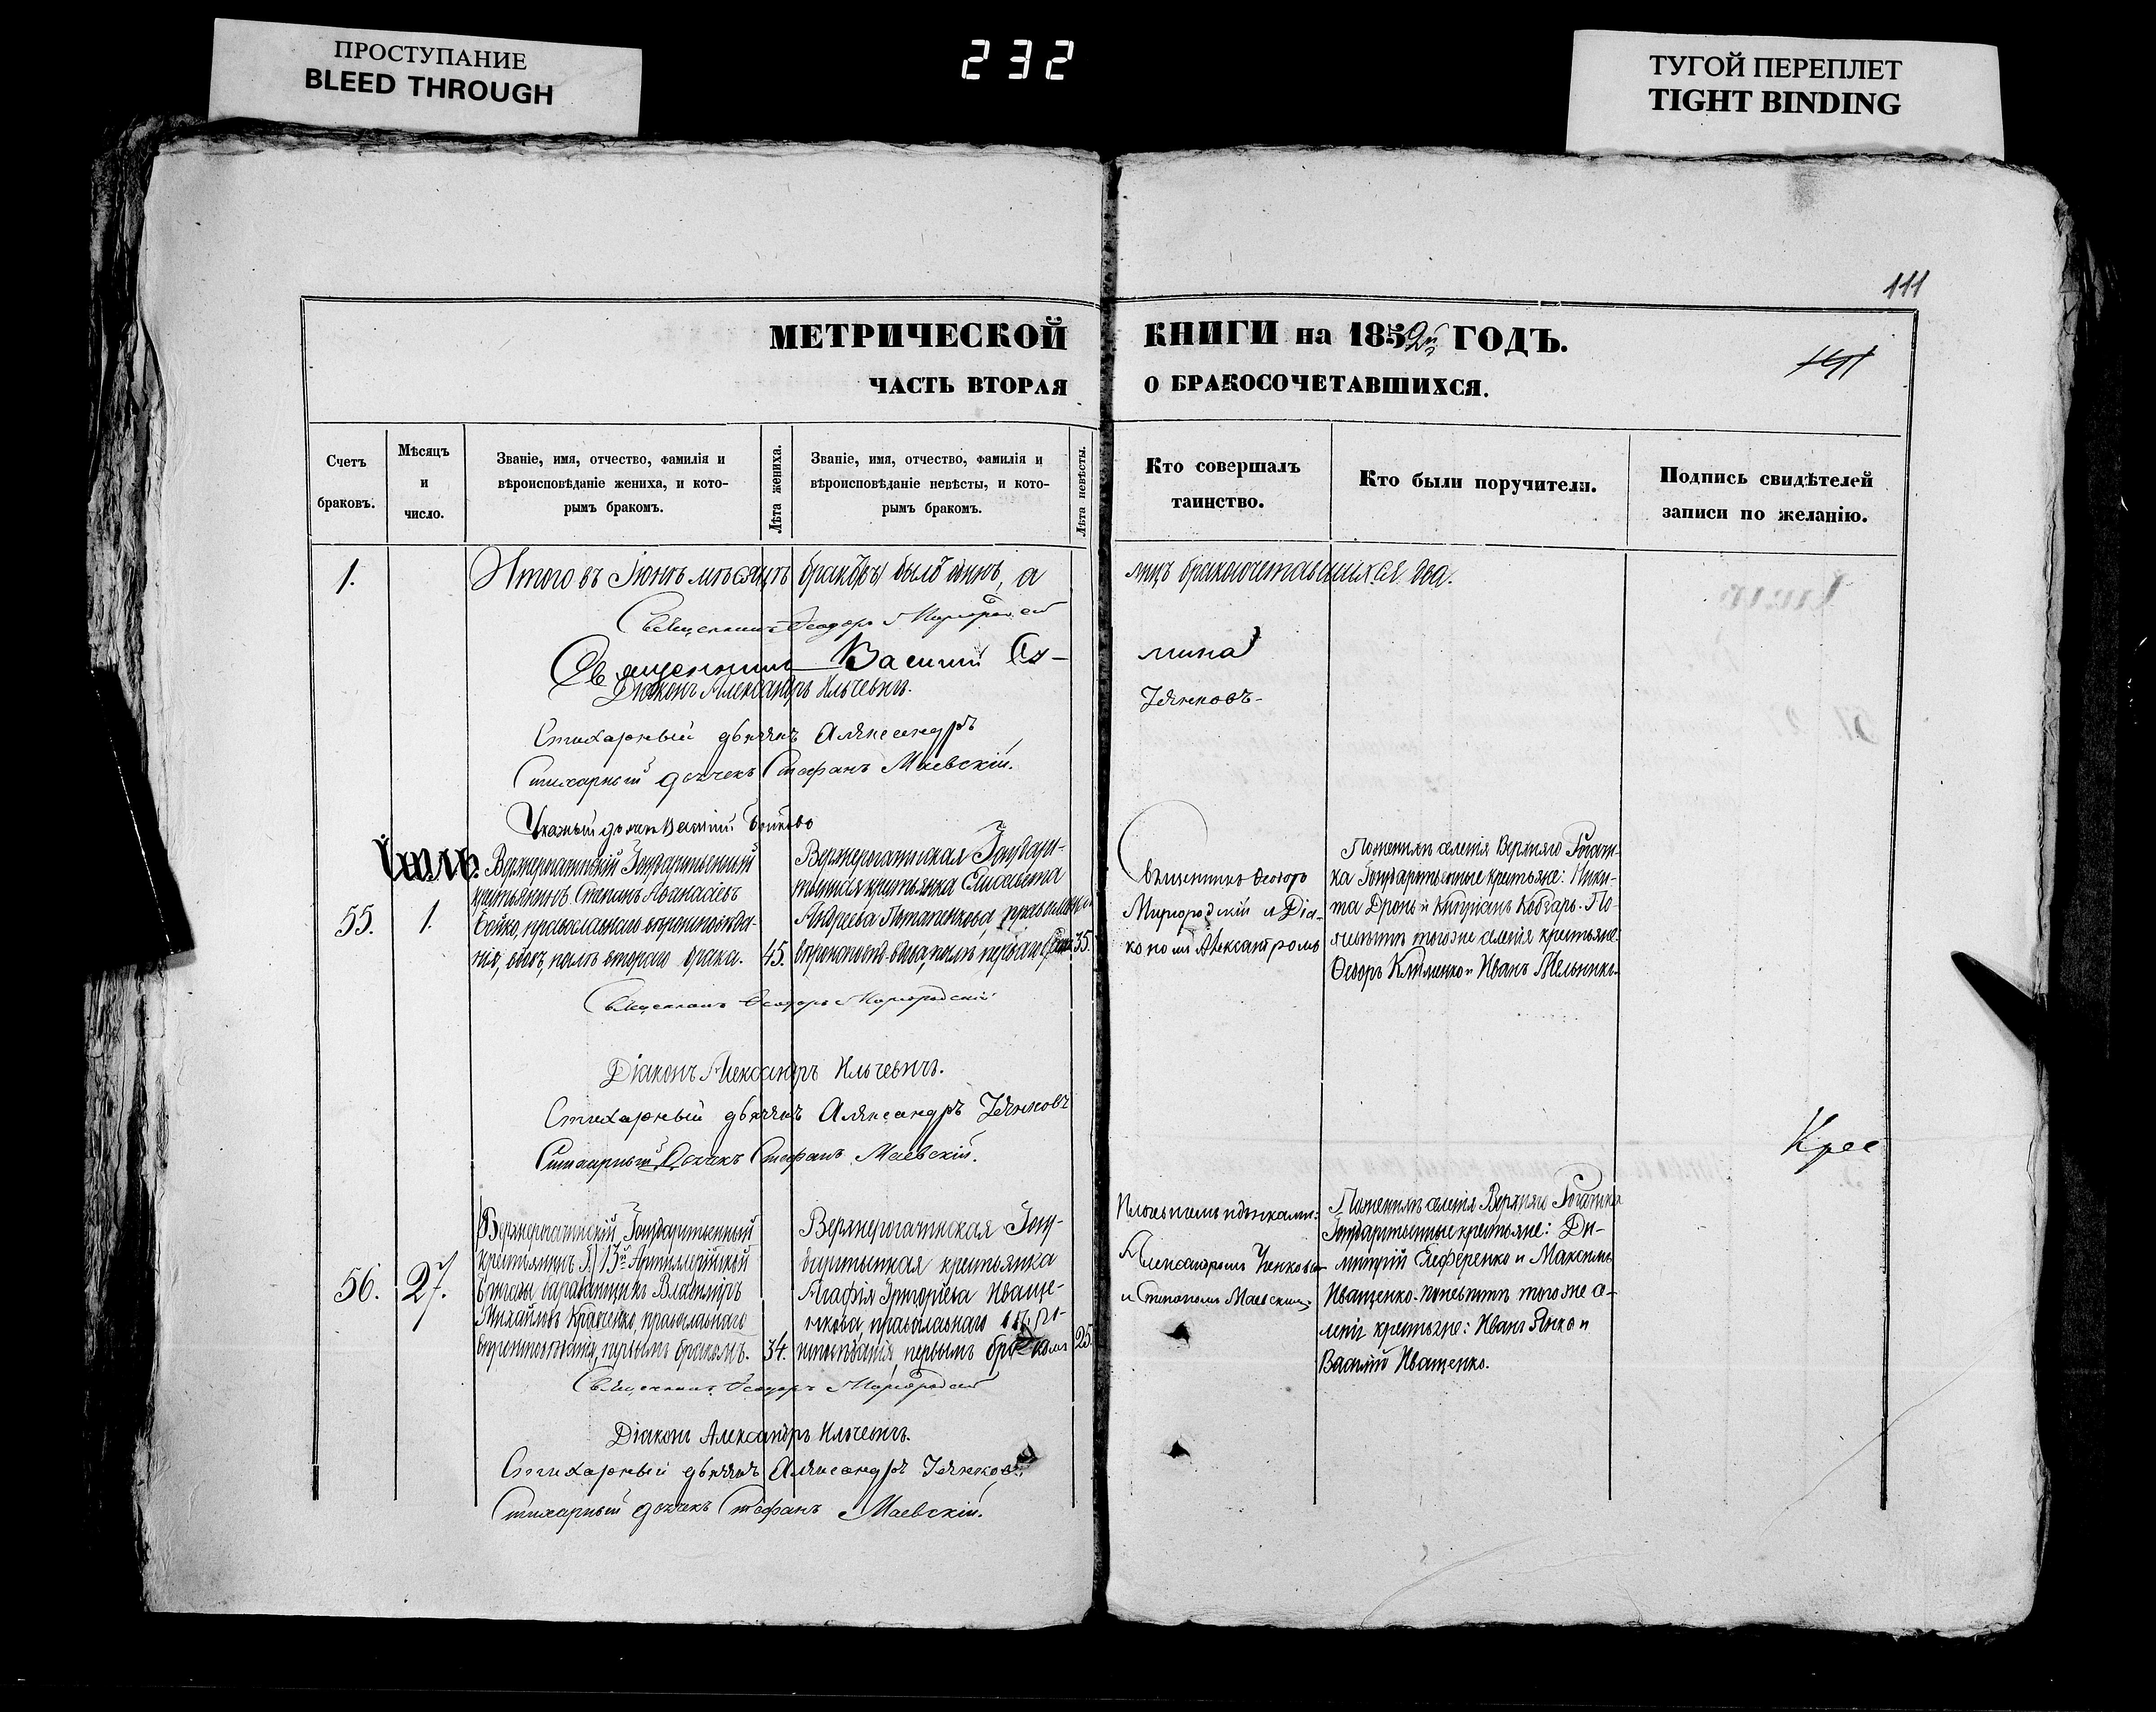 ПРОСТУПАНИЕ
BLEED THROUGH
232
ТУГОЙ ПЕРЕПЛЕТ
TIGHT BINDING
111
МЕТРИЧЕСКОЙ КНИГИ на 1852й ГОДЪ.
ЧАСТЬ ВТОРАЯ О БРАКОСОЧЕТАВШИХСЯ.
Счетъ
браковъ.
Мѣсяцъ
и
число.
Званіе, имя, отчество, фамилія и
вѣроисповѣданіе жениха, и кото-
рымъ бракомъ.
Лѣта жениха.
Званіе, имя, отчество, фамилія и
вѣроисповѣданіе невѣсты, и кото-
рымъ бракомъ.
Лѣта невѣсты.
Кто совершалъ
таинство.
Кто были поручители.
Подпись свидѣтелей
записи по желанію.
1.
Итого въ Іюнѣ мѣсяцѣ браковъ было одинъ, а лицъ бракосочетавшихся два.
Священникъ Ѳеодоръ Миргородскій
Священникъ Василий
Діаконъ Александръ Ильчевичъ.
Стихарный дьячекъ Александръ
Стихарный дьячекъ Стефанъ Маевскій.
Іюль.
55.
1.
Верхнерогачикскій Государственный
крестьянинъ Стефанъ Аѳанасіевъ
Бойко, православнаго вѣроисповѣда-
нія, вдовъ, послѣ втораго брака.
45.
Верхнерогачикская Государ-
ственная крестьянка Елисавета
Андреева Потапенкова, православнаго
35.
Священникъ Ѳеодоръ
Миргородскій и Діа-
кономъ Александромъ
По женихѣ селенія Верхняго Рогачи-
ка Государственные крестьяне: Ники-
та Дронь и Кипріанъ Кобзарь. По
невѣстѣ тогоже селенія крестьяне
Ѳедоръ Клименко и Иванъ Мельникъ.
Священникъ Ѳеодоръ Миргородскій
Діаконъ Александръ Ильчевичъ.
Стихарный дьячекъ Александръ
Стихарный Дьячекъ Стефанъ Маевскій.
Крес
56.
27.
Верхнерогачикскій Государственный
крестьянинъ 13й Артиллерійской
бригады барабанщикъ Владиміръ
Михайловъ Кравченко, православнаго
вѣроисповѣданія, первымъ бракомъ.
34.
Верхнерогачикская Госу-
дарственная крестьянка
Агафія Григоріева Иваще-
нкова, православнаго вѣро-
исповѣданія, первымъ бракомъ
25.
Александромъ
и Стефаномъ Маевскимъ.
По женихѣ селенія Верхняго Рогачика
Государственные крестьяне: Ди-
митрій Елференко и Максимъ
Иващенко. По невѣстѣ тогоже се-
ленія крестьяне: Иванъ Янко и
Василій Иващенко.
Священникъ Ѳеодоръ Миргородскій
Діаконъ Александръ Ильчевичъ.
Стихарный дьячекъ Александръ
Стихарный дьячекъ Стефанъ Маевскій.